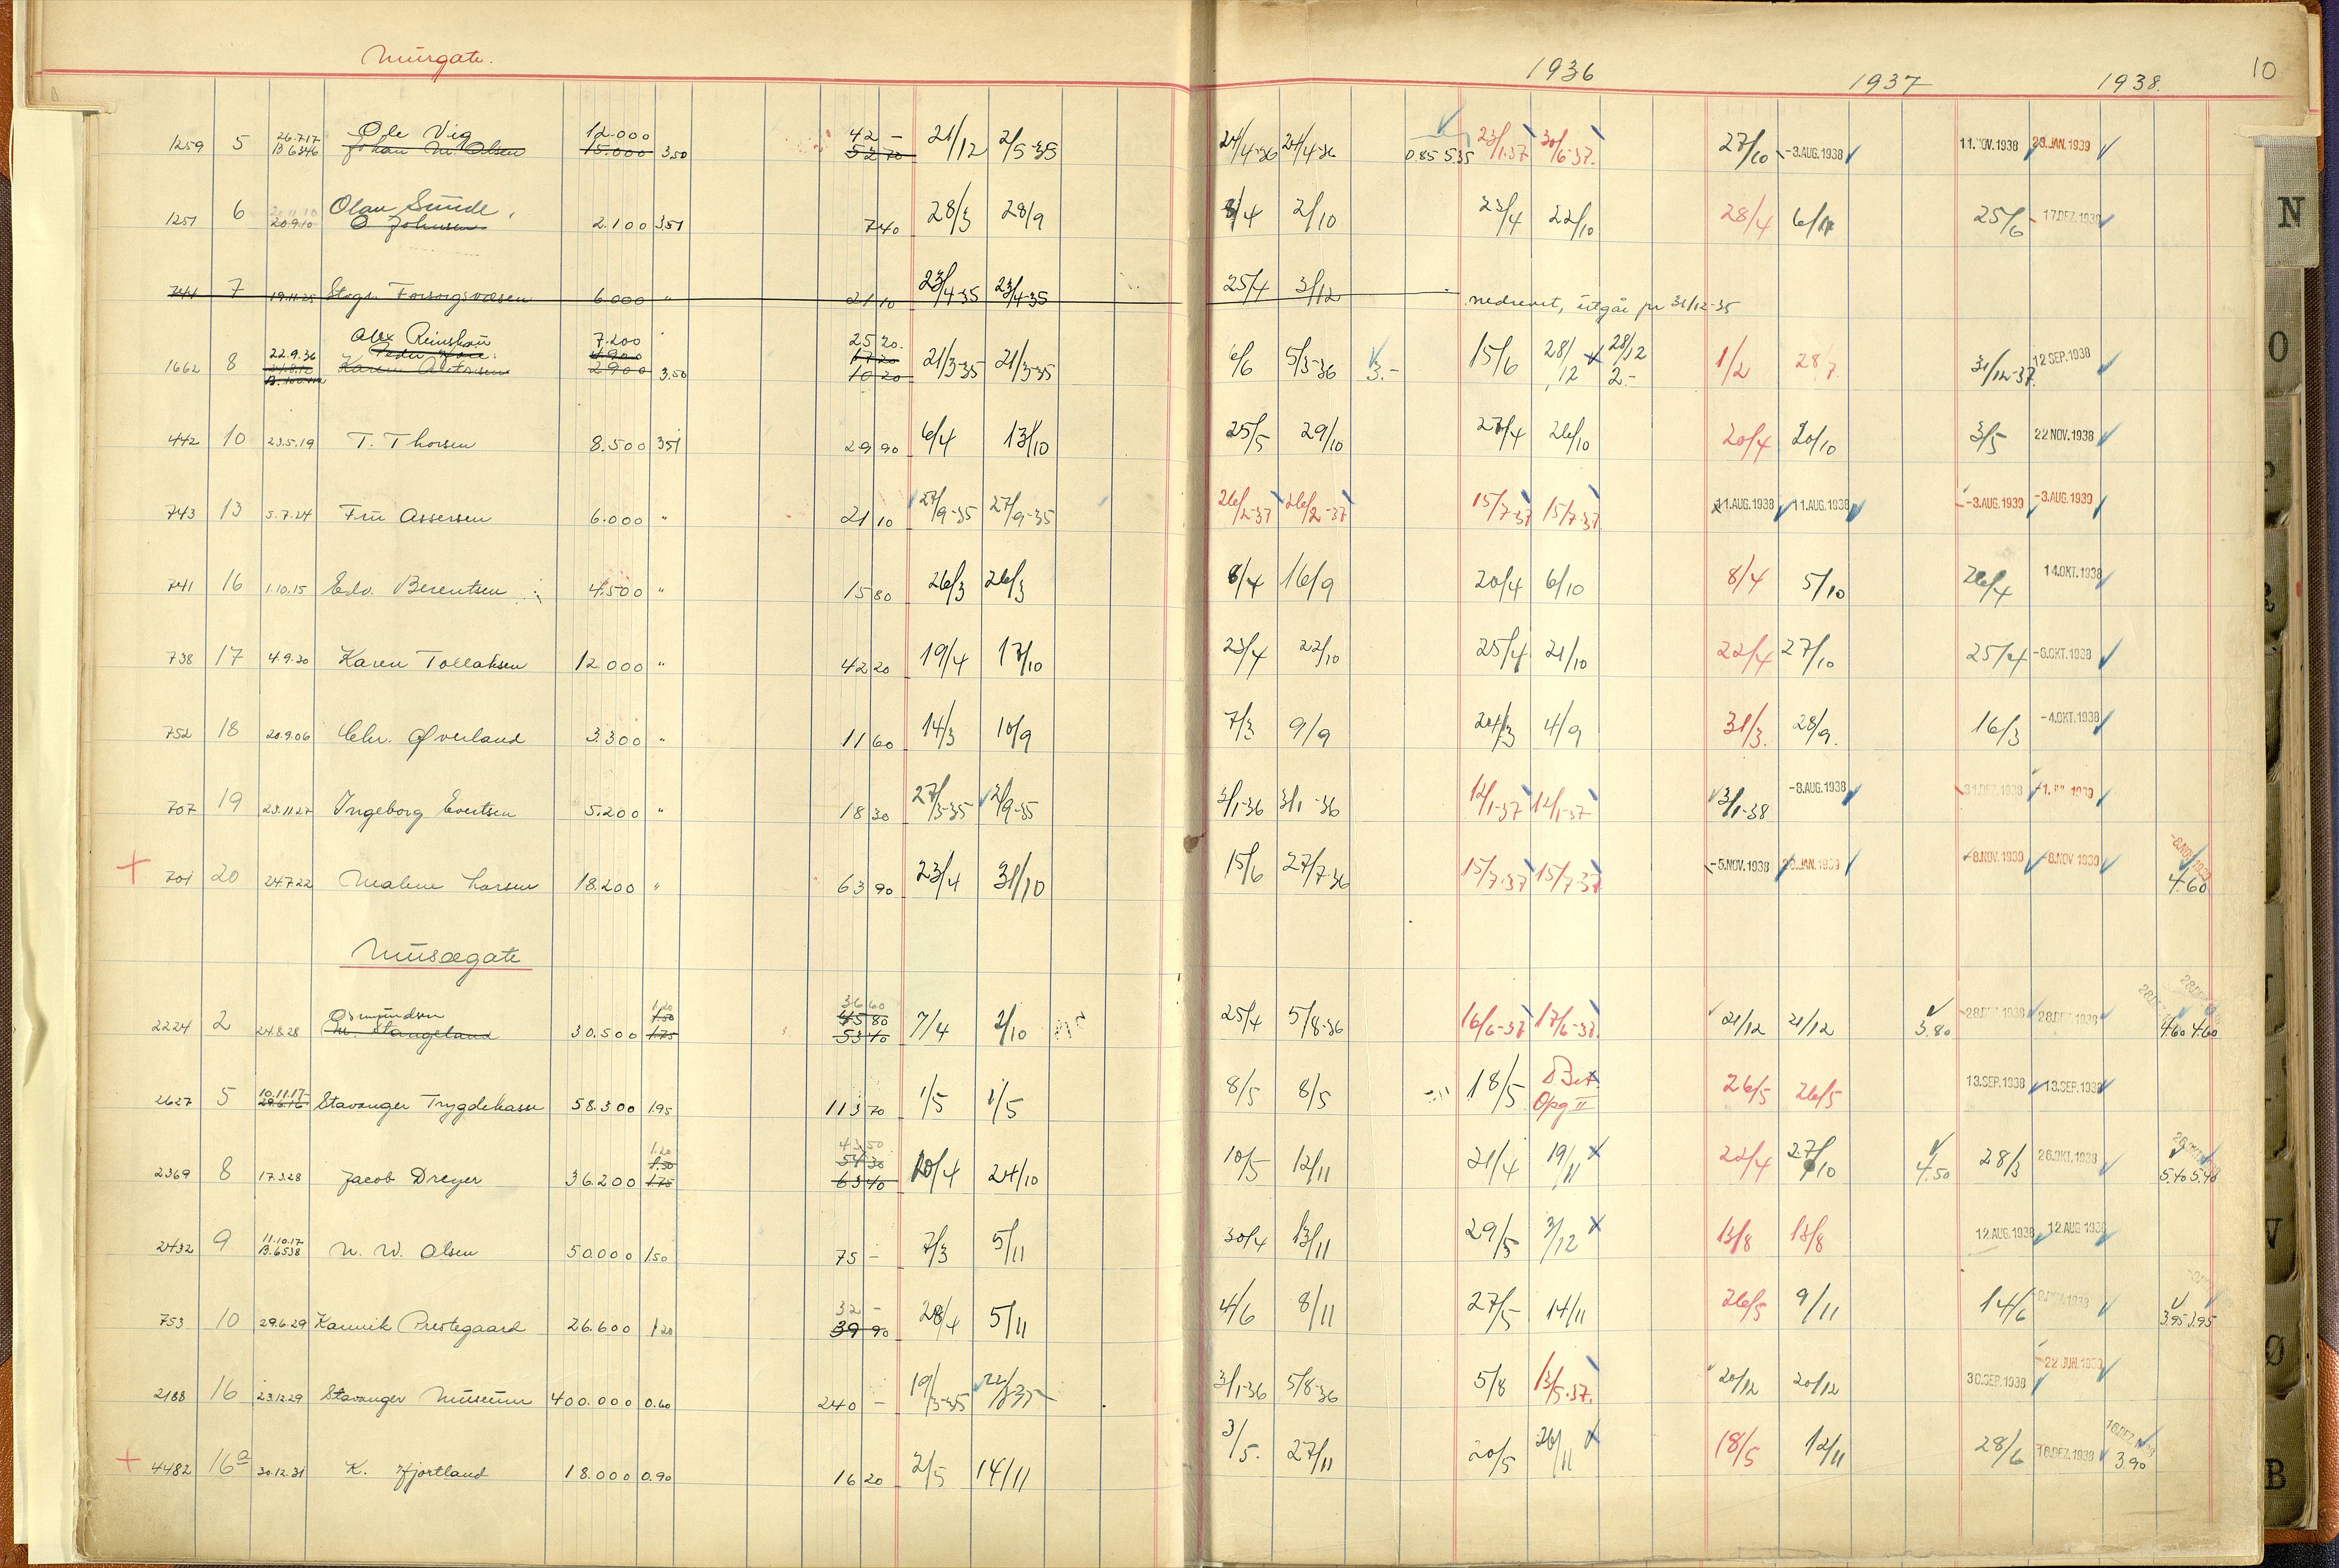 Murgate.
1936 1937 1938. 10
Ole Vig 12.000 42 –
1259 5 26.7.17 B 6346 Johan M. Olsen 15.000 3.50 52 70 21/12 2/5-35 24/4-36 24/4-36 0.85 5.35 23/1-37 30/6-37. 27/10 -3.AUG.1938 11.NOV.1938 23.JAN.1939
Olau Sunde,
1251 6 20.9.10 O Johnsen 2.100 3.51 7 40 28/3 28/9 8/4 2/10 23/4 22/10 28/4 6/11 25/6 17.DEZ.1938
744 7 19.11.25 Stvgr. Forsorgsvæsen 6.000 " 21 10 23/4-35 23/4-35 25/4 3/12 nedrevet, utgår pr 31/12-35
Alex Reinskau 7.200 25 20.
22.9.36 Peder 4.900 17 20
1662 8 24.8.12 Karen 2900 3.50 10 20 21/3-35 21/3-35 6/6 5/3-36 3.- 15/6 28/12 28/12 2.- 1/2 28/7 31/12-37. 12 SEP.1938
442 10 23.5.19 T. Thorsen 8.500 3.51 29 90 6/4 13/10 25/5 29/10 27/4 26/10 20/4 20/10 3/5 22 NOV.1938
743 13 5.7.24 Fru Assersen 6.000 " 21 10 27/9-35 27/9-35 26/2-37 26/2-37 15/7-37 15/7-37 11.AUG.1938 11.AUG.1938 -3.AUG.1939 -3.AUG.1939
741 16 1.10.15 Edv. Berentsen 4.500 " 15 80 26/3 26/3 8/4 16/9 20/4 6/10 8/4 5/10 26/4 14.OKT.1938
738 17 4.9.20 Karen Tollaksen 12.000 " 42 20 19/4 17/10 23/4 22/10 25/4 21/10 22/4 27/10 25/4 -6.OKT.1938
752 18 20.9.06 Chr. Øverland 3.300 " 11 60 14/3 10/9 7/3 9/9 24/3 4/9 31/3. 28/9. 16/3 -4.OKT.1938
707 19 23.11.27 Ingeborg Evertsen 5.200 " 18 30 27/3-35 2/9-35 3/1-36 3/1-36 12/1-37 12/1-37 3/1-38 -8.AUG.1938 31.DEZ.1938
701 20 24.7.22 Malene Larsen 18.200 " 63 90 23/4 31/10 15/6 27/7-36 15/7-37 15/7-37 -5.NOV.1938 23.JAN.1939 -8.NOV.1939 -8.NOV.1939 -8.NOV.1939 4.60
Musægate
Osmundsen 1.20 36 60
1.50 45 80
2224 2 24.8.28 M. Stangeland 30.500 1.75 53 40 7/4 2/10 25/4 5/8-36 16/6-37 17/6-37. 21/12 21/12 3.80 28.DEZ.1938 28.DEZ.1938 4.60 4.60
2627 5 10.11.17 29.6.16 Stavanger Trygdekasse 58.300 1.95 113 70 1/5 1/5 8/5 8/5 18/5 D Bet Opg II 26/5 26/5 13.SEP.1938 13.SEP.1938
1.20 43 50
1.50 54 30
2369 8 17.3.28 Jacob Dreyer 36.200 1.75 63 40 20/4 24/10 10/5 12/11 21/4 19/11 22/4 27/10 4.50 28/3 26.OKT.1938 5.40 5.40
2432 9 11.10.17 B.6538 N. W. Olsen 50.000 1.50 75 – 7/3 5/11 30/4 13/11 29/5 3/12 13/8 13/8 12.AUG.1938 12.AUG.1938
32 –
753 10 29.6.29 Kannik Prestegaard 26.600 1.20 39 90 28/4 5/11 4/6 8/11 27/5 14/11 26/5 9/11 14/6 3.95 3.95
2188 16 23.12.29 Stavanger Museum 400.000 0.60 240 – 19/3-35 3/1-36 5/8-36 5/8 13/5-37. 20/12 20/12 30.SEP.1938 22 JUN.1939
4482 16a 30.12.31 K. Hjortland 18.000 0.90 16 20 2/5 14/11 3/5. 27/11 20/5 26/11 18/5 12/11 28/6 16.DEZ.1938 16.DEZ.1938 3.90
N
O
V
Ø
B